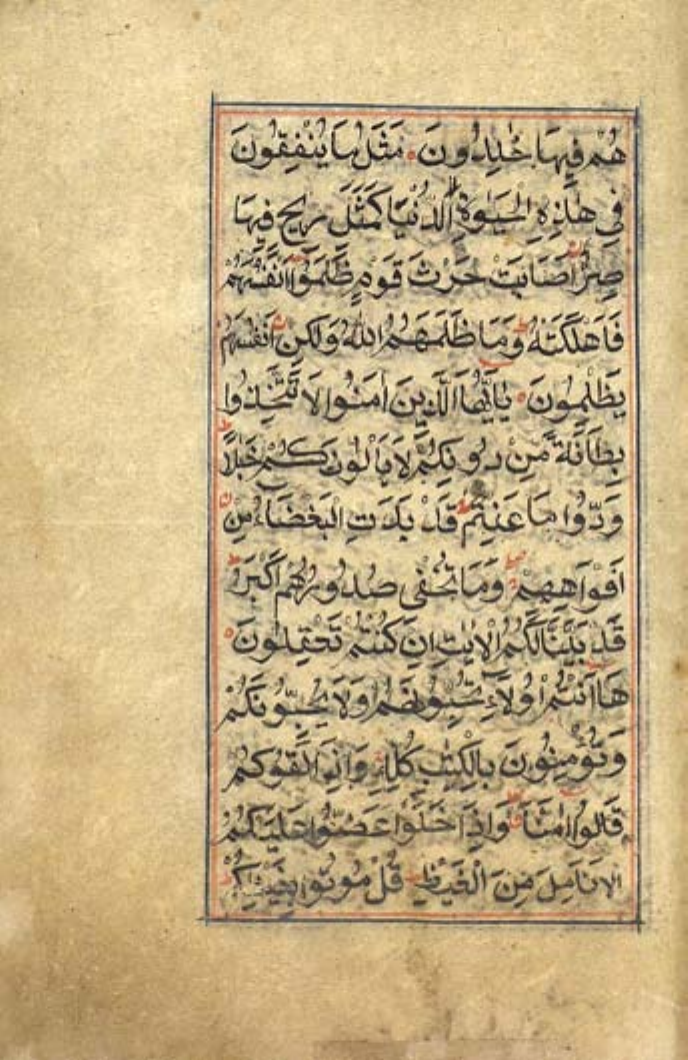 هُمْ فِيهَا خٰلِدُونَ مَثَلُ مَا يُنْفِقُونَ
فِى هٰذِهِ الْحَيٰوةِ الدُّنْيَا كَمَثَلِ رِيحٍ فِيهَا
صِرٌّ اَصَابَتْ حَرْثَ قَوْمٍ ظَلَمُوا اَنْفُسَهُمْ
فَاَهْلَكَتْهُ وَمَا ظَلَمَهُمُ اللهُ وَلٰكِنْ اَنْفُسَهُمْ
يَظْلِمُونَ يٰاَيُّهَا الَّذِينَ اٰمَنُوا لَا تَتَّخِذُوا
بِطَانَةً مِنْ دُونِكُمْ لَا يَاْلُونَكُمْ خَبَالًا
وَدُّوا مَا عَنِتُّمْ قَدْ بَدَتِ الْبَغْضَاءُ مِنْ
اَفْوَاهِهِمْ وَمَا تُخْفِى صُدُورُهُمْ اَكْبَرُ
قَدْ بَيَّنَّا لَكُمُ الْاٰيٰتِ اِنْ كُنْتُمْ تَعْقِلُونَ
هَا اَنْتُمْ اُولَاءِ تُحِبُّونَهُمْ وَلَا يُحِبُّونَكُمْ
وَتُؤْمِنُونَ بِالْكِتٰبِ كُلِّهِ وَاِذَا لَقُوكُمْ
قَالُوا اٰمَنَّا وَاِذَا خَلَوْا عَضُّوا عَلَيْكُمُ
الْاَنَامِلَ مِنَ الْغَيْظِ قُلْ مُوتُوا بِغَيْظِكُمْ